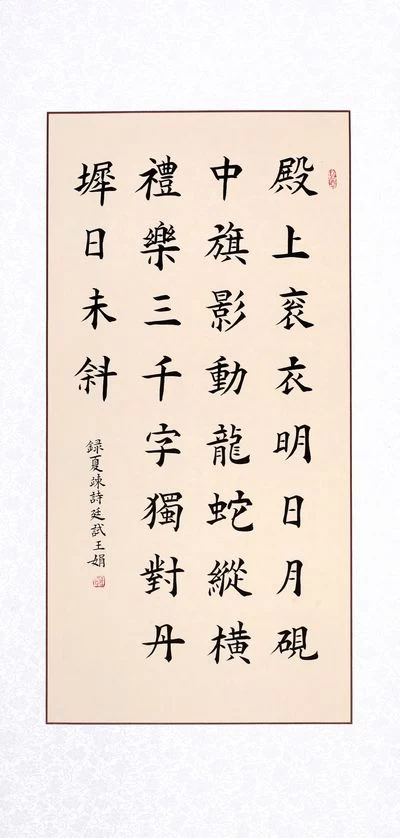 殿上衮衣明日月硯
中旗影動龍蛇縱橫
禮樂三千字獨對丹
墀日未斜
録夏竦詩廷試王娟